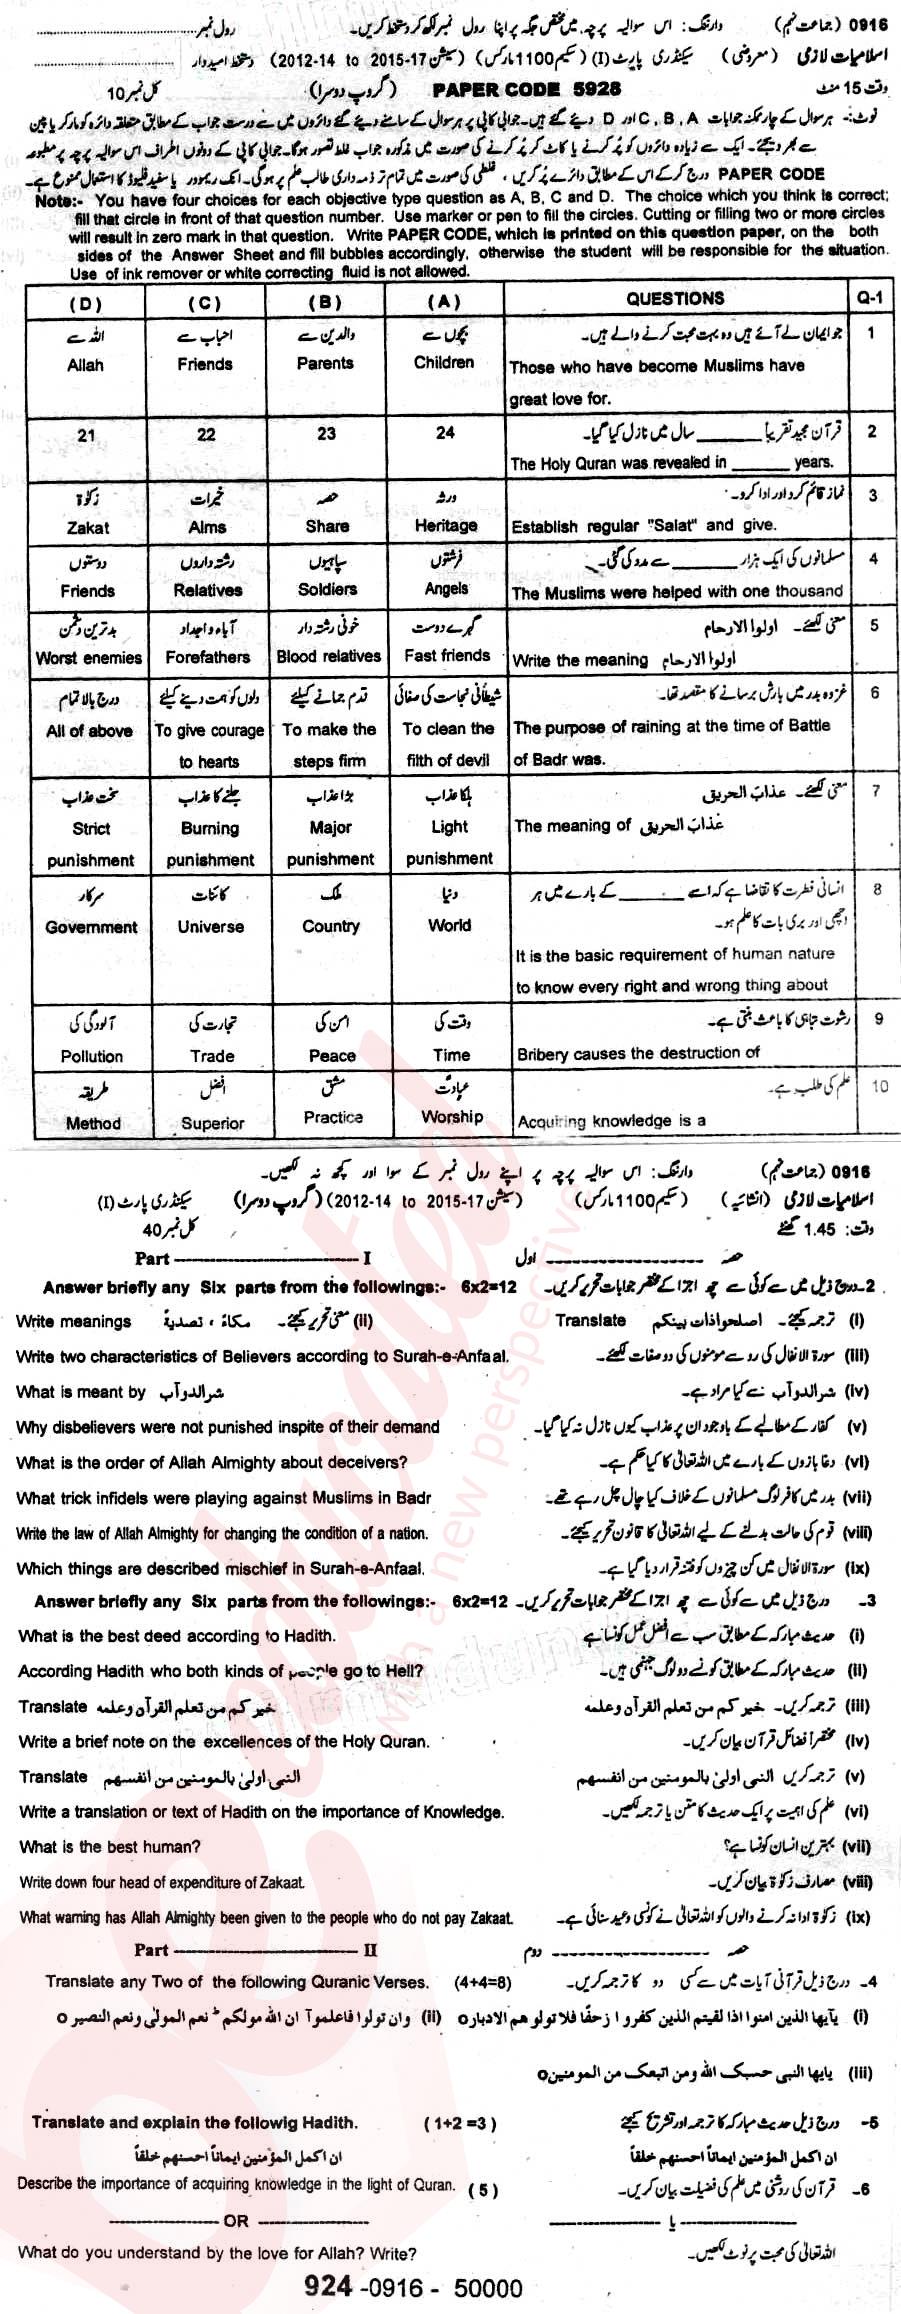 0916 (جماعت نہم) وارننگ: اس سوالیہ پرچہ میں مختص جگہ پر اپنا رول نمبر لکھ کر دستخط کریں۔ رول نمبر
اسلامیات لازمی (معروضی) سیکنڈری پارٹ (I) (سکیم 1100 مارکس) (سیشن 2015-17 to 2012-14) دستخط امیدوار
وقت 15 منٹ PAPER CODE 5928 (گروپ دوسرا) کل نمبر 10
نوٹ:- ہر سوال کے چار ممکنہ جوابات A, B, C اور D دیئے گئے ہیں۔ جوابی کاپی پر ہر سوال کے سامنے دیئے گئے دائروں میں سے درست جواب کے مطابق متعلقہ دائرہ کو مارکر یا پین
سے بھر دیجئے۔ ایک سے زیادہ دائروں کو پُر کرنے یا کاٹ کر پُر کرنے کی صورت میں مذکورہ جواب غلط تصور ہوگا۔ جوابی کاپی کے دونوں اطراف اس سوالیہ پرچہ پر مطبوعہ
PAPER CODE درج کر کے اس کے مطابق دائرے پُر کریں، غلطی کی صورت میں تمام تر ذمہ داری طالب علم پر ہوگی۔ انک ریموور یا سفید فلیوڈ کا استعمال ممنوع ہے۔
Note:- You have four choices for each objective type question as A, B, C and D. The choice which you think is correct;
fill that circle in front of that question number. Use marker or pen to fill the circles. Cutting or filling two or more circles
will result in zero mark in that question. Write PAPER CODE, which is printed on this question paper, on the both
sides of the Answer Sheet and fill bubbles accordingly, otherwise the student will be responsible for the situation.
Use of ink remover or white correcting fluid is not allowed.
(D) (C) (B) (A) QUESTIONS Q-1
اللہ سے احباب سے والدین سے بچوں سے جو ایمان لے آئے ہیں وہ بہت محبت کرنے والے ہیں۔ 1
Allah Friends Parents Children Those who have become Muslims have
great love for.
21 22 23 24 قرآن مجید تقریباً ______ سال میں نازل کیا گیا۔ 2
The Holy Quran was revealed in ______ years.
زکوٰۃ خیرات حصہ ورثہ نماز قائم کرو اور ادا کرو۔ 3
Zakat Alms Share Heritage Establish regular "Salat" and give.
دوستوں رشتہ داروں سپاہیوں فرشتوں مسلمانوں کی ایک ہزار ______ سے مدد کی گئی۔ 4
Friends Relatives Soldiers Angels The Muslims were helped with one thousand
بدترین دشمن آباء و اجداد خونی رشتہ دار گہرے دوست معنی لکھئے۔ اولوا الارحام 5
Worst enemies Forefathers Blood relatives Fast friends Write the meaning اولوا الارحام
درج بالا تمام دلوں کو ہمت دینے کیلئے قدم جمانے کیلئے شیطانی نجاست کی صفائی غزوہ بدر میں بارش برسانے کا مقصد تھا۔ 6
All of above To give courage To make the To clean the The purpose of raining at the time of Battle
to hearts steps firm filth of devil of Badr was.
سخت عذاب جلنے کا عذاب بڑا عذاب ہلکا عذاب معنی لکھئے۔ عذاب الحریق 7
Strict Burning Major Light The meaning of عذاب الحریق
punishment punishment punishment punishment
سرکار کائنات ملک دنیا انسانی فطرت کا تقاضا ہے کہ اسے ______ کے بارے میں ہر 8
Government Universe Country World اچھی اور بری بات کا علم ہو۔
It is the basic requirement of human nature
to know every right and wrong thing about
آلودگی کی تجارت کی امن کی وقت کی رشوت تباہی کا باعث بنتی ہے۔ 9
Pollution Trade Peace Time Bribery causes the destruction of
طریقہ افضل مشق عبادت علم کی طلب ہے۔ 10
Method Superior Practice Worship Acquiring knowledge is a
0916 (جماعت نہم) وارننگ: اس سوالیہ پرچہ پر اپنے رول نمبر کے سوا اور کچھ نہ لکھیں۔
اسلامیات لازمی (انشائیہ) (سکیم 1100 مارکس) (سیشن 2015-17 to 2012-14) (گروپ دوسرا) سیکنڈری پارٹ (I)
وقت: 1.45 گھنٹے کل نمبر 40
Part ------------ I حصہ ------------ اول
Answer briefly any Six parts from the followings:- 6x2=12 2۔ درج ذیل میں سے کوئی سے چھ اجزا کے مختصر جوابات تحریر کریں۔
(i) ترجمہ کیجئے۔ اصلحوا ذات بینکم Translate (ii) معنی تحریر کیجئے۔ مکاءً ، تصدیۃً Write meanings
Write two characteristics of Believers according to Surah-e-Anfaal. (iii) سورۃ الانفال کی رو سے مومنوں کی دو صفات لکھئے۔
What is meant by شرالدوآب (iv) شرالدوآب سے کیا مراد ہے۔
Why disbelievers were not punished inspite of their demand (v) کفار کے مطالبے کے باوجود ان پر عذاب کیوں نازل نہ کیا گیا۔
What is the order of Allah Almighty about deceivers? (vi) دغا بازوں کے بارے میں اللہ تعالیٰ کا کیا حکم ہے۔
What trick infidels were playing against Muslims in Badr (vii) بدر میں کافر لوگ مسلمانوں کے خلاف کیا چال چل رہے تھے۔
Write the law of Allah Almighty for changing the condition of a nation. (viii) قوم کی حالت بدلنے کے لیے اللہ تعالیٰ کا قانون تحریر کیجئے۔
Which things are described mischief in Surah-e-Anfaal. (ix) سورۃ الانفال میں کن چیزوں کو فتنہ قرار دیا گیا ہے۔
Answer briefly any Six parts from the followings:- 6x2=12 3۔ درج ذیل میں سے کوئی سے چھ اجزا کے مختصر جوابات تحریر کریں۔
What is the best deed according to Hadith. (i) حدیث مبارکہ کے مطابق سب سے افضل عمل کونسا ہے
According Hadith who both kinds of people go to Hell? (ii) حدیث مبارکہ کے مطابق کونسے دو لوگ جہنمی ہیں۔
Translate خیر کم من تعلم القرآن وعلمہ (iii) ترجمہ کریں۔ خیر کم من تعلم القرآن وعلمہ
Write a brief note on the excellences of the Holy Quran. (iv) مختصراً فضائل قرآن بیان کریں۔
Translate النبی اولیٰ بالمومنین من انفسهم (v) ترجمہ کریں النبی اولیٰ بالمومنین من انفسهم
Write a translation or text of Hadith on the importance of Knowledge. (vi) علم کی اہمیت پر ایک حدیث کا متن یا ترجمہ لکھیں۔
What is the best human? (vii) بہترین انسان کونسا ہے؟
Write down four head of expenditure of Zakaat. (viii) مصارف زکوٰۃ بیان کریں۔
What warning has Allah Almighty been given to the people who do not pay Zakaat. (ix) زکوٰۃ ادا نہ کرنے والوں کو اللہ تعالیٰ نے کونسی وعید سنائی ہے۔
Part ------------ II حصہ ------------ دوم
Translate any Two of the following Quranic Verses. (4+4=8) 4۔ درج ذیل قرآنی آیات میں سے کسی دو کا ترجمہ کریں۔
(i) یآیها الذین امنوا اذا لقیتم الذین کفروا زحفًا فلا تولو هم الادبار○ (ii) وان تولوا فاعلموآ ان الله مولکم ط نعم المولیٰ ونعم النصیر○
(iii) یایها النبی حسبک الله ومن اتبعک من المومنین○
Translate and explain the followig Hadith. (1+2=3) 5۔ درج ذیل حدیث مبارکہ کا ترجمہ اور تشریح کیجئے
ان اکمل المؤمنین ایماناً احسنهم خلقاً ان اکمل المؤمنین ایماناً احسنهم خلقاً
Describe the importance of acquiring knowledge in the light of Quran. (5) 6۔ قرآن کی روشنی میں علم کی فضیلت بیان کریں۔
------------ OR ------------ ------------ یا ------------
What do you understand by the love for Allah? Write? اللہ تعالیٰ کی محبت پر نوٹ لکھیں۔
924 -0916 - 50000
educated
with a new perspective